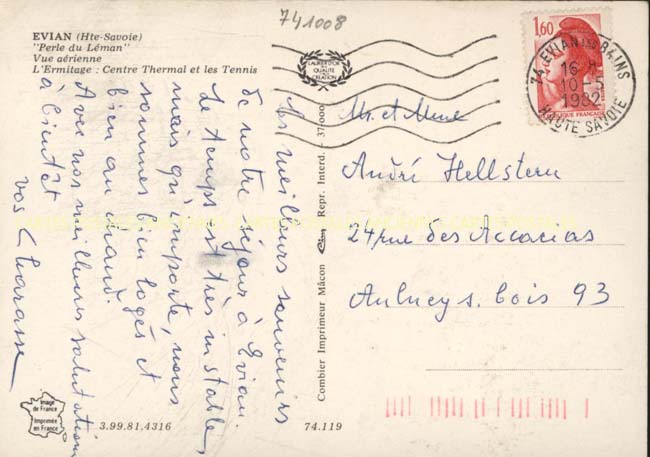 741008
EVIAN (Hte-Savoie)
"Perle du Léman"
Vue aérienne
L'Ermitage : Centre Thermal et les Tennis
Les meilleurs souvenirs
de notre séjour à Evian.
Le temps est très instable,
mais qu'importe, nous
sommes bien logés et
bien au chaud.
Avec nos meilleures salutations
à bientôt
vos
Image
de France
Imprimée
en France
3.99.81.4316
74.119
Combier Imprimeur Mâcon
Repr. Interd. - 37/000
LAURIER D'OR
DE LA
QUALITE
CREATION
1,60
74 EVIAN LES BAINS
16 H
10 - 5
1982
HAUTE SAVOIE
Mr. et Mme
André Hellstern
24 rue des Accacias
Aulney s. bois 93